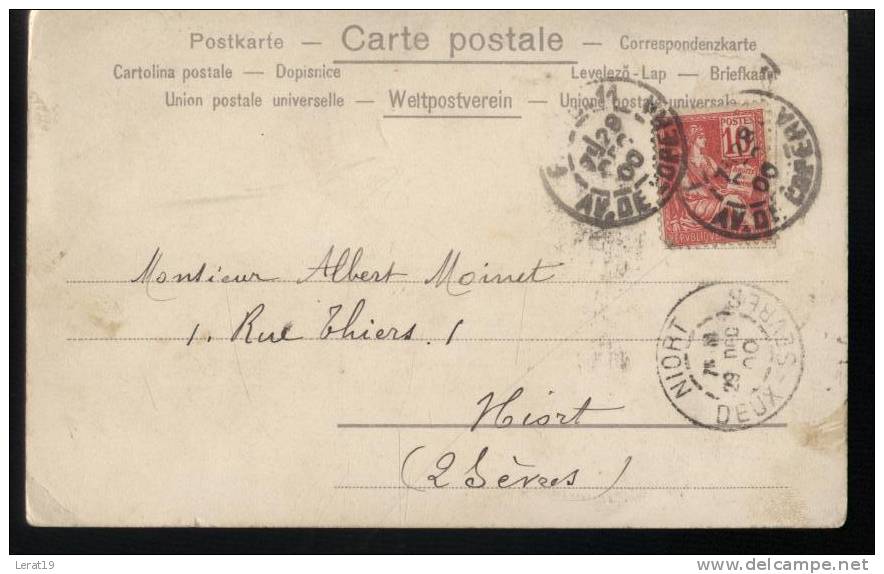 Postkarte — Carte postale — Correspondenzkarte
Cartolina postale — Dopisnice Levelező-Lap — Briefkaart
Union postale universelle — Weltpostverein — Unione postale universale
POSTES
10
AV. DE L'OPERA
00
AV. DE L'OPERA
00
Monsieur Albert Moinet
1. Rue Thiers. 1
Niort
(2 Sèvres)
NIORT
DEUX-SEVRES
29 DEC
00
Lerat19
www.delcampe.net